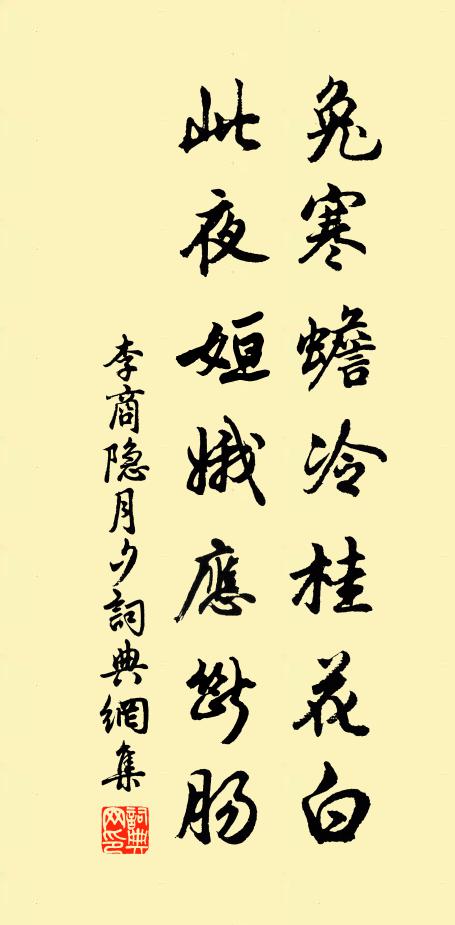 兔寒蟾冷桂花白
此夜姮娥應斷肠
李商隐月夕詞典網集
詞典網印